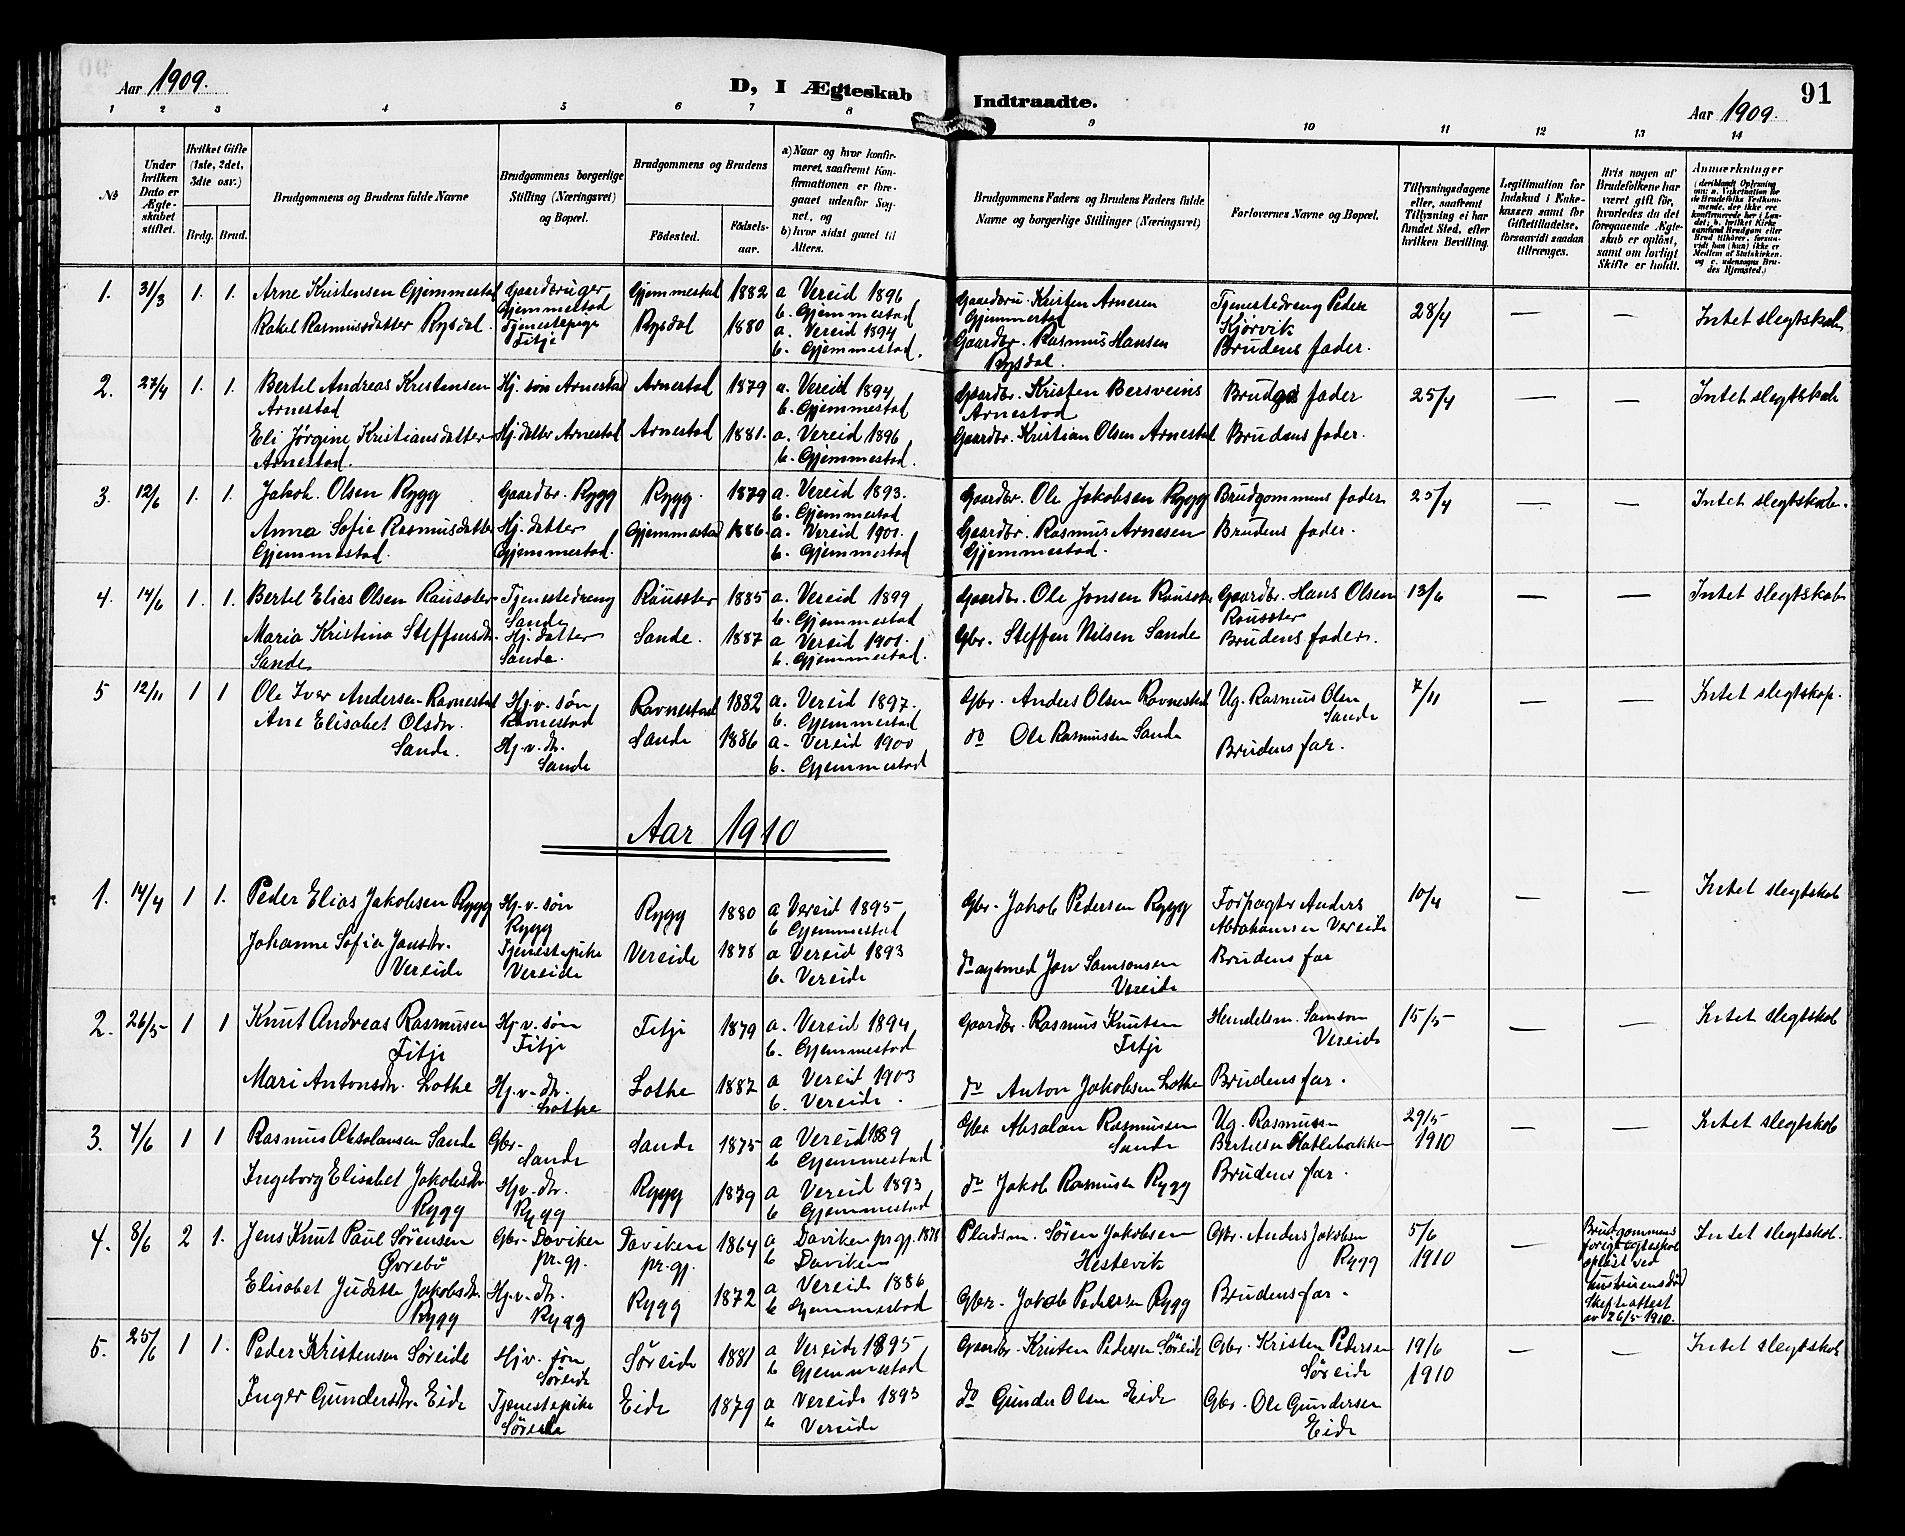 Aar 1909.
D, I Ægteskab Indtraadte.
91
Aar 1909.
1 2 3 4 5 6 7 8 9 10 11 12 13 14
№
Under hvilken Dato er Ægteskabet stiftet.
Hvilket Gifte (1ste, 2det, 3die osv.)
Brdg. Brud.
Brudgommens og Brudens fulde Navne
Brudgommens borgerlige Stilling (Næringsvei) og Bopæl.
Brudgommens og Brudens
Fødested.
Fødselsaar.
a) Naar og hvor konfirmeret, saafremt Konfirmationen er foregaaet udenfor Sognet, og
b) hvor sidst gaaet til Alters.
Brudgommens Faders og Brudens Faders fulde Navne og borgerlige Stillinger (Næringsvei)
Forlovernes Navne og Bopæl.
Tillysningsdagene eller, saafremt Tillysning ei har fundet Sted, efter hvilken Bevilling.
Legitimation for Indskud i Enkekassen samt for Giftetilladelse, forsaavidt saadan tiltrænges.
Hvis nogen af Brudefolkene har været gift før, hvorledes da det foregaaende Ægteskab er opløst, samt om lovligt Skifte er holdt.
Anmærkninger
1. 31/3 1. 1. Arne Kristensen Gjemmestad Gaardbruger Gjemmestad Gjemmestad 1882 a Vereid 1896 b. Gjemmestad Gaardbru. Kristen Arnesen Gjemmestad Tjenestedreng Peder Kjørvik 28/4 — — Intet slegtskab
Rakel Rasmusdatter Rysdal. Tjenestepige Fitje Rysdal 1880 a. Vereid 1894 b. Gjemmestad. Gaardbr. Rasmus Hansen Rysdal. Brudens fader.
2. 27/4 1. 1. Bertel Andreas Kristensen Arnestad Hj. søn Arnestad Arnestad 1879 a. Vereid 1894 b. Gjemmestad Gaardbr. Kristen Bersveins Arnestad Brudgs fader 25/4 — — Intet slegtskab
Eli Jørgine Kristiansdatter Arnestad. Hj. datter Arnestad Arnestad 1881. a. Vereid 1896 b. Gjemmestad. Gaardbr. Kristian Olsen Arnestad Brudens fader.
3. 12/6 1. 1. Jakob. Olsen Rygg Gaardbr. Rygg Rygg. 1879 a. Vereid 1893. b. Gjemmestad Gaardbr. Ole Jakobsen Rygg Brudgommens fader 25/4 — — Intet slegtskab.
Anna Sofie Rasmusdatter Gjemmestad. Hj. datter Gjemmestad. Gjemmestad 1886. a. Vereid 1901. b. Gjemmestad Gaardbr. Rasmus Arnesen Gjemmestad. Brudens fader.
4. 14/6 1. 1. Bertel Elias Olsen Rausster Tjenestedreng Sande Rausster 1885 a. Vereid 1899 b. Gjemmestad Gaardbr. Ole Jonsen Gaardbr. Hans Olsen Rausster 13/6 — — Intet slegtskab
Maria Kristina Steffensdr. Sande Hj. datter Sande. Sande. 1887 a Vereid 1901. b. Gjemmestad. Gbr. Steffen Nilsen Sande Brudens fader.
5 12/11 1 1 Ole Iver Andersen Ravnestad Hj. v. søn Ravnestad Ravnestad 1882 a. Vereid 1897. b. Gjemmestad Gbr. Anders Olsen Ravnestad Ug. Rasmus Olsen Sande 7/11 — — Intet slegtskap.
Ane Elisabet Olsdr. Sande. Hj. v. dr. Sande Sande 1886 a. Vereid 1900 b. Gjemmestad do Ole Rasmussen Sande Brudens far.
Aar 1910
1. 14/4 1 1. Peder Elias Jakobsen Rygg Hj. v. søn Rygg Rygg 1880 a Vereid 1895 b Gjemmestad Gbr. Jakob Pedersen Rygg Forpagter Anders Abrahamsen Vereide 10/4 — — Intet slegtskab
Johanne Sofia Jonsdr. Vereide Tjenestepike Vereide Vereide 1878 a Vereid 1893 b. Vereide Jon Samsonsen Vereide Brudens far
2. 26/5 1 1 Knut Andreas Rasmusen Fitje Hj. v. søn Fitje Fitje 1879 a. Vereid 1894 b. Gjemmestad Gaardbr. Rasmus Knutsen Fitje Handelsm. Samson Vereide 15/5 — — Intet slegtskab
Mari Antonsdr. Lothe Hj. v. dr. Lothe Lothe 1887 a Vereid 1903 b. Vereide. do Anton Jakobsen Lothe Brudens far.
3. 4/6 1 1 Rasmus Absalonsen Sande Gbr. Sande Sande 1875 a Vereid 189 b Gjemmestad Gbr Absalon Rasmussen Sande Ug. Rasmus Bertelsen Hatlebakken 29/5 1910 — — Intet slegtskab
Ingeborg Elisabet Jakobsdr. Rygg Hj. v. dr. Rygg Rygg 1879 a Vereid 1893 b Gjemmestad do Jakob Rasmusen Rygg Brudens far.
4. 8/6 2 1. Jens Knut Paul Sørensen Øvrebø Gbr. Daviken pr.gj. Daviken pr.gj. 1864 a Daviken pr.gj. 1878 b Daviken Pladsm. Søren Jakobsen Hestevik Gbr. Anders Jakobsen Rygg 5/6 1910 — Brudgommens forige egteskab opløst ved hustruens død Skifteattest av 26/5 1910. Intet slegtskab.
Elisabet Juditte Jakobsdr. Rygg Hj. v. dr. Rygg Rygg 1872 a Vereide 1886 b Gjemmestad Gbr. Jakob Pedersen Rygg Brudens far.
5. 25/6 1 1. Peder Kristensen Søreide Hj. v. søn Søreide Søreide 1881 a Vereide 1895 b Gjemmestad Gaardbr. Kristen Pedersen Søreide Gbr. Kristen Pedersen Søreide 19/6 1910 — — Intet slegtskab
Inger Gundersdr. Eide Tjenestepike Søreide Eide 1879 a Vereide 1893 b Vereide do Gunder Olsen Eide Gbr. Ole Gundersen Eide